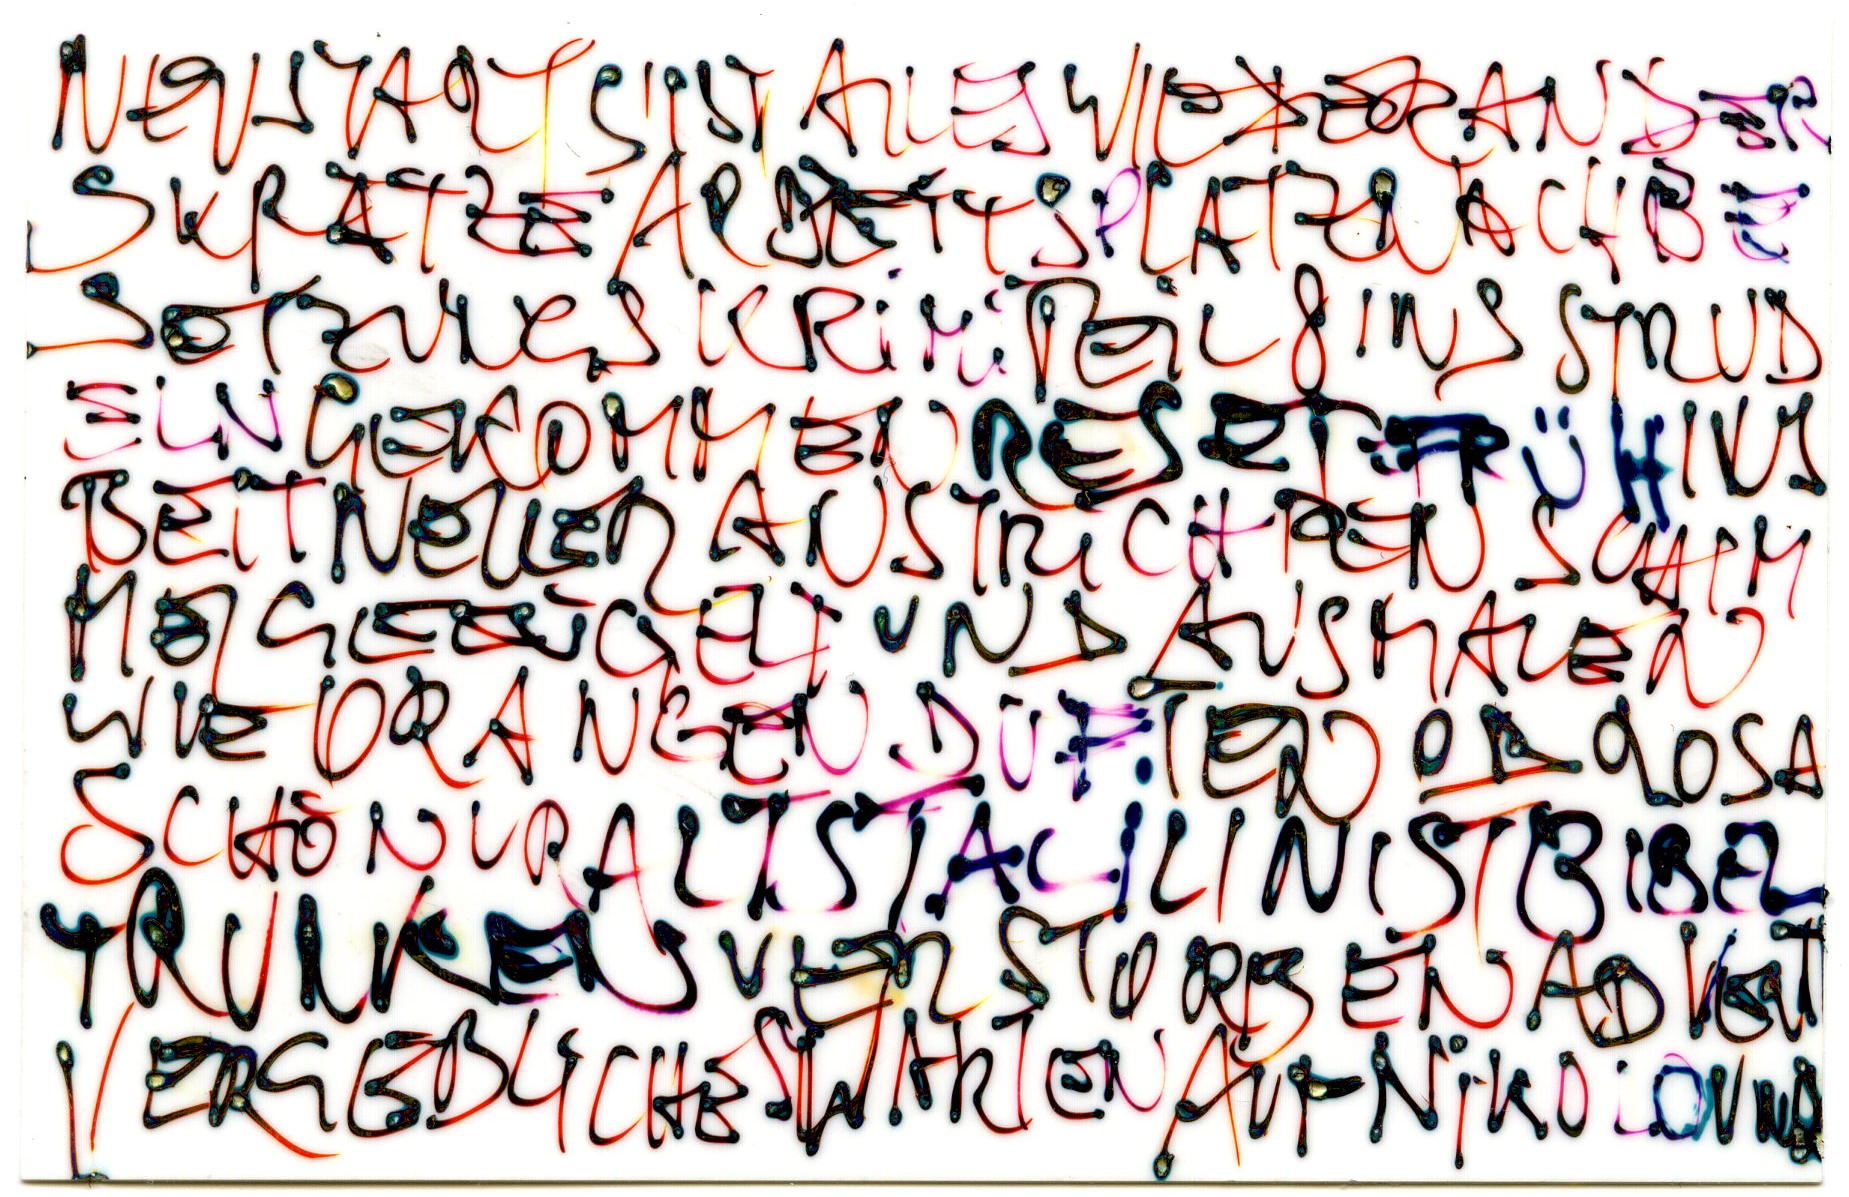 NEUSTART S IST ALLES WIEDER ANDER
S KRÄTZE ARBEITSPLATZ NACH BE
SETZUNGSKRIMI TEIL 8 INS STRUD
ELN GEKOMMEN RESET FRÜH INS
BETT NEUER ANSTRICH DEN SCHIM
MEL GEEUGELT UND AUSMALEN
WIE ORANGEN DUFTEN OD ROSA
SCHÖN URALT STACI LIN IST BIBEL
TRUNKEN VERSTORBEN ADVENT
VERGEBLICHES WARTEN AUF NIKOLO UND